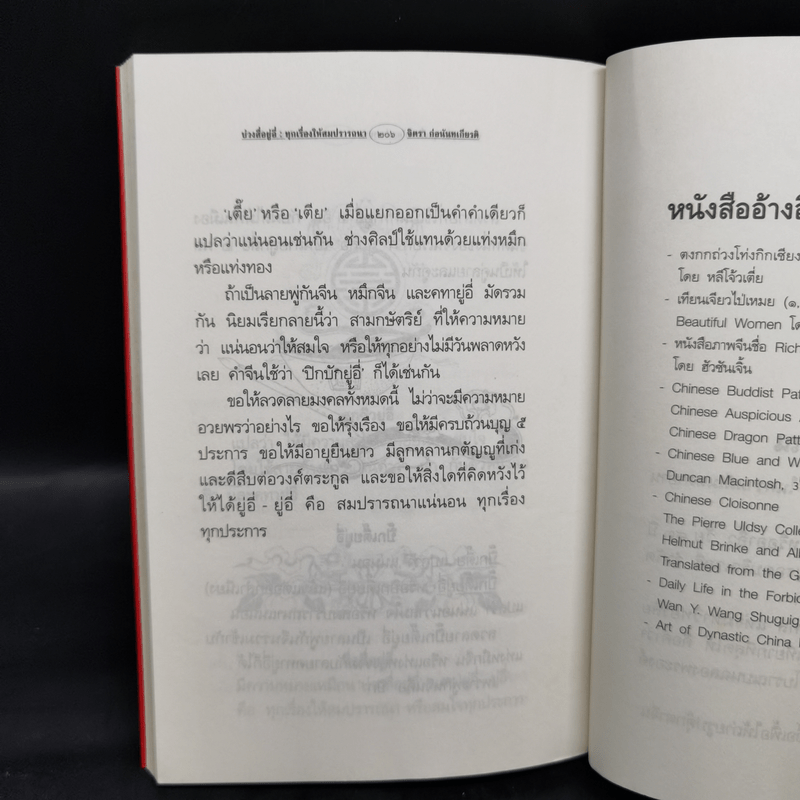 ปวงสื่อยู่อี่ : ทุกเรื่องให้สมปรารถนา ๒๐๖ จิตรา ก่อนันทเกียรติ
'เตี๊ย' หรือ 'เตีย' เมื่อแยกออกเป็นคำคำเดียวก็
แปลว่าแน่นอนเช่นกัน ช่างศิลป์ใช้แทนด้วยแท่งหมึก
หรือแท่งทอง
ถ้าเป็นลายพู่กันจีน หมึกจีน และคทายู่อี่ มัดรวม
กัน นิยมเรียกลายนี้ว่า สามกษัตริย์ ที่ให้ความหมาย
ว่า แน่นอนว่าให้สมใจ หรือให้ทุกอย่างไม่มีวันพลาดหวัง
เลย คำจีนใช้ว่า 'ปิกบักยู่อี่' ก็ได้เช่นกัน
ขอให้ลวดลายมงคลทั้งหมดนี้ ไม่ว่าจะมีความหมาย
อวยพรว่าอย่างไร ขอให้รุ่งเรือง ขอให้มีครบถ้วนบุญ ๕
ประการ ขอให้มีอายุยืนยาว มีลูกหลานกตัญญูที่เก่ง
และดีสืบต่อวงศ์ตระกูล และขอให้สิ่งใดที่คิดหวังไว้
ให้ได้ยู่อี่ - ยู่อี่ คือ สมปรารถนาแน่นอน ทุกเรื่อง
ทุกประการ
หนังสืออ้างอิ
- ตงกกถ่วงโท่งกิกเซียง
โดย หลีโจ้วเตี่ย
- เทียนเจียวไป่เหมย (๑,
Beautiful Women โด
- หนังสือภาพจีนชื่อ Rich
โดย ฮัวซันเจิ้น
- Chinese Buddist Pat
Chinese Auspicious
Chinese Dragon Patt
- Chinese Blue and W
Duncan Macintosh, 3
- Chinese Cloisonne
The Pierre Uldsy Colle
Helmut Brinke and All
Translated from the G
- Daily Life in the Forbid
Wan Y. Wang Shuguig
- Art of Dynastic China